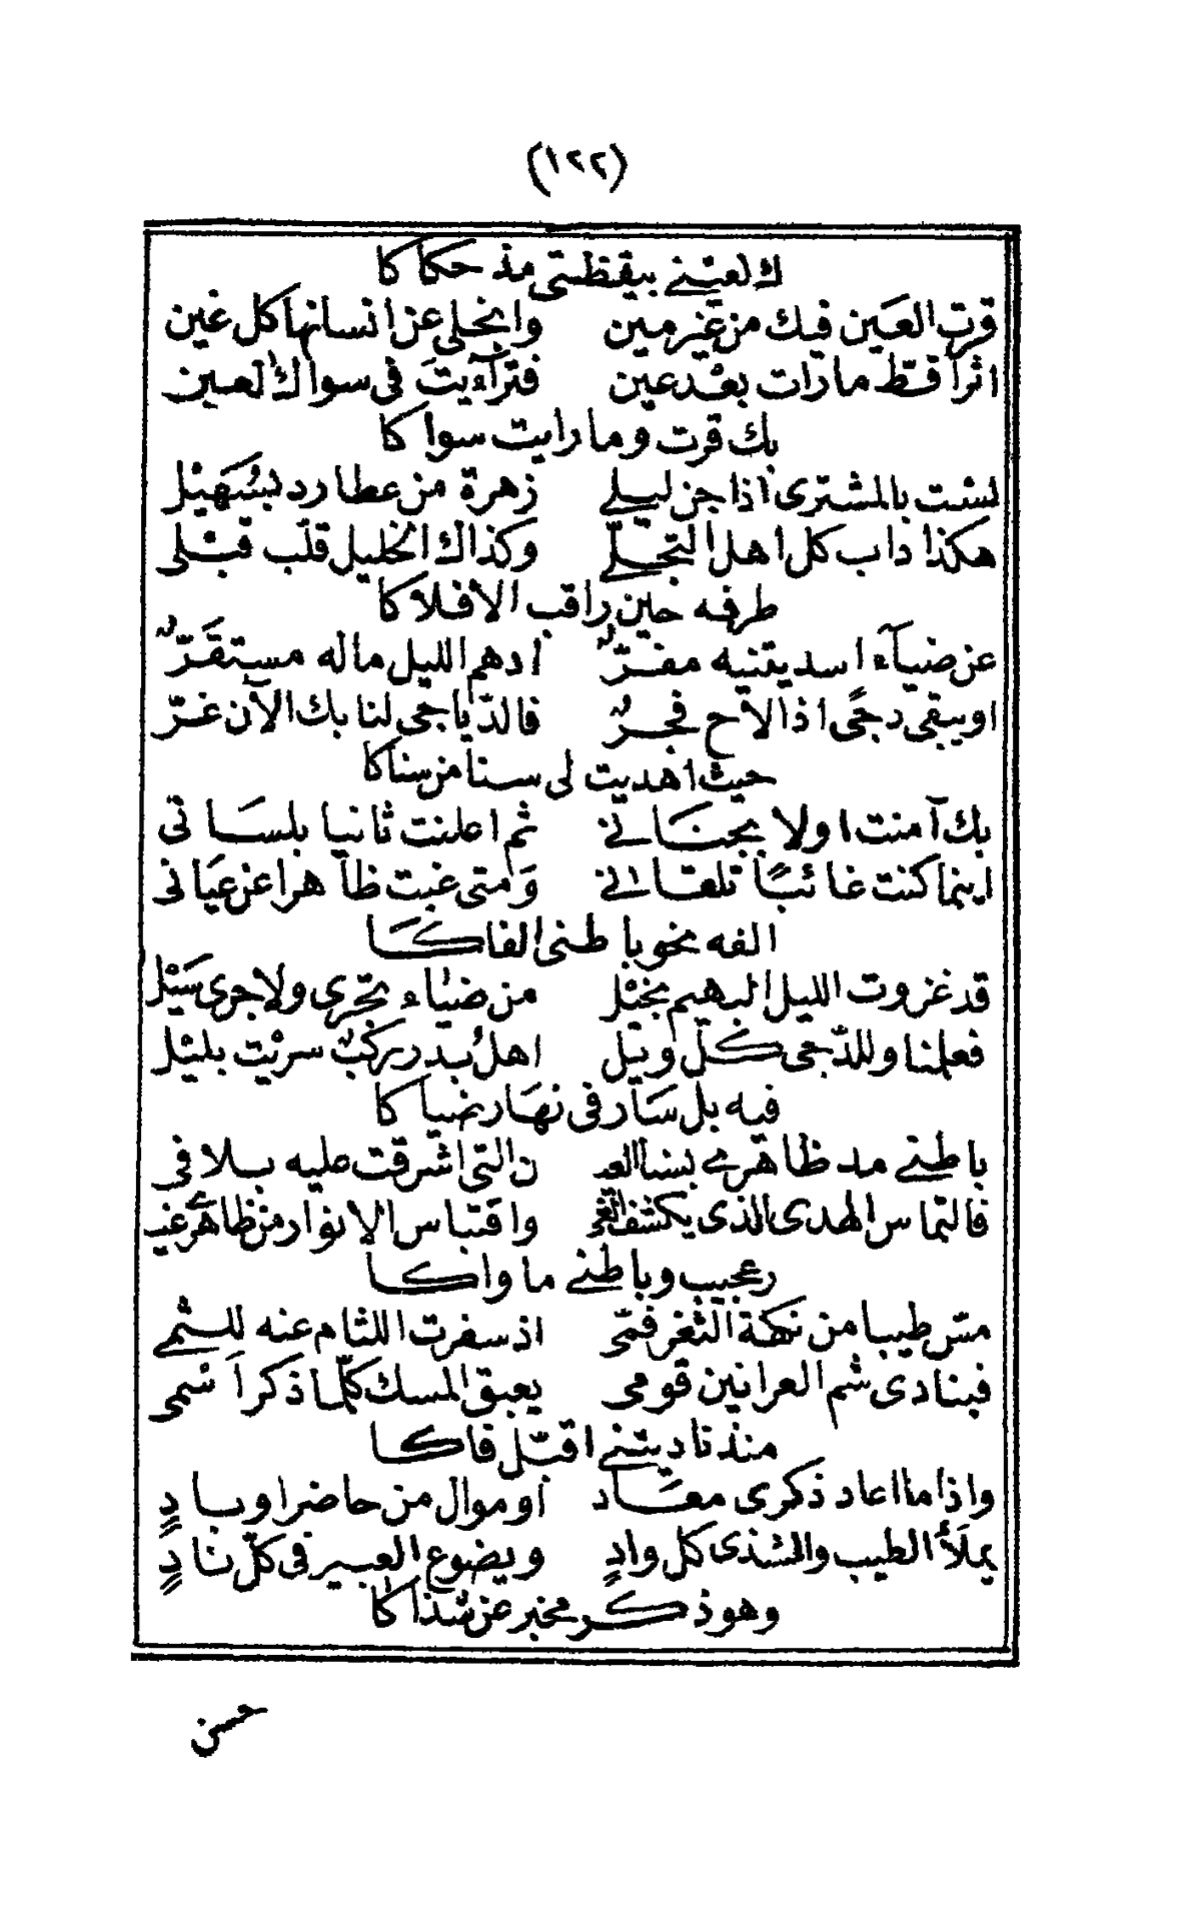 (١٢٢)
ك لعيني بيقظتي مذ حكاكا
قرت العين فيك من غير مين وانجلى عن انسانها كل غين
اثرا قط ما رات بعد عين فترآءيت في سواك لعين
بك قرت وما رايت سواكا
لست بالمشترى اذا جن ليلي زهرة من عطارد بسهيل
هكذا داب كل اهل التجلّي وكذاك الخليل قلّب قبلى
طرفه حين راقب الافلاكا
عن ضيآء اسد يتنيه مفرّ ادهم الليل ماله مستقرّ
او يبقى دجًى اذا لاح فجر فالدّياجى لنا بك الآن غرّ
حيث اهديت لى سنا من سناكا
بك آمنت اولا بجناني ثم اعلنت ثانيا بلسانى
اينما كنت غائبًا تلقانى ومتى غبت ظاهرا عن عيانى
الفه نحو باطنى الفاكا
قد غزوت الليل البهيم بخيل من ضياء تجرى ولا جرى سيل
فعلنا وللدّجى كلّ ويل اهل بدر ركب سريت بليل
فيه بل سار في نهار ضياكا
باطني مد ظاهري بسنا العد ن التى اشرقت عليه بلا في
فالتماس الهدى الذى يكشف الغر واقتباس الانوار من ظاهرى غيـ
ر عجيب وباطني ماواكا
مسّ طيبا من نكهة الثغر فمّى اذ سفرت اللثام عنه للثمي
فبنادى شم العرانين قومى يعبق المسك كلّما ذكر اسمى
منذ ناديتني اقبّل فاكا
واذا ما اعاد ذكرى معاد او موال من حاضر او بادٍ
يملأ الطيب والشذى كل وادٍ ويضوع العبير في كلّ نادٍ
وهو ذكر مخبر عن شذاكا
حسن